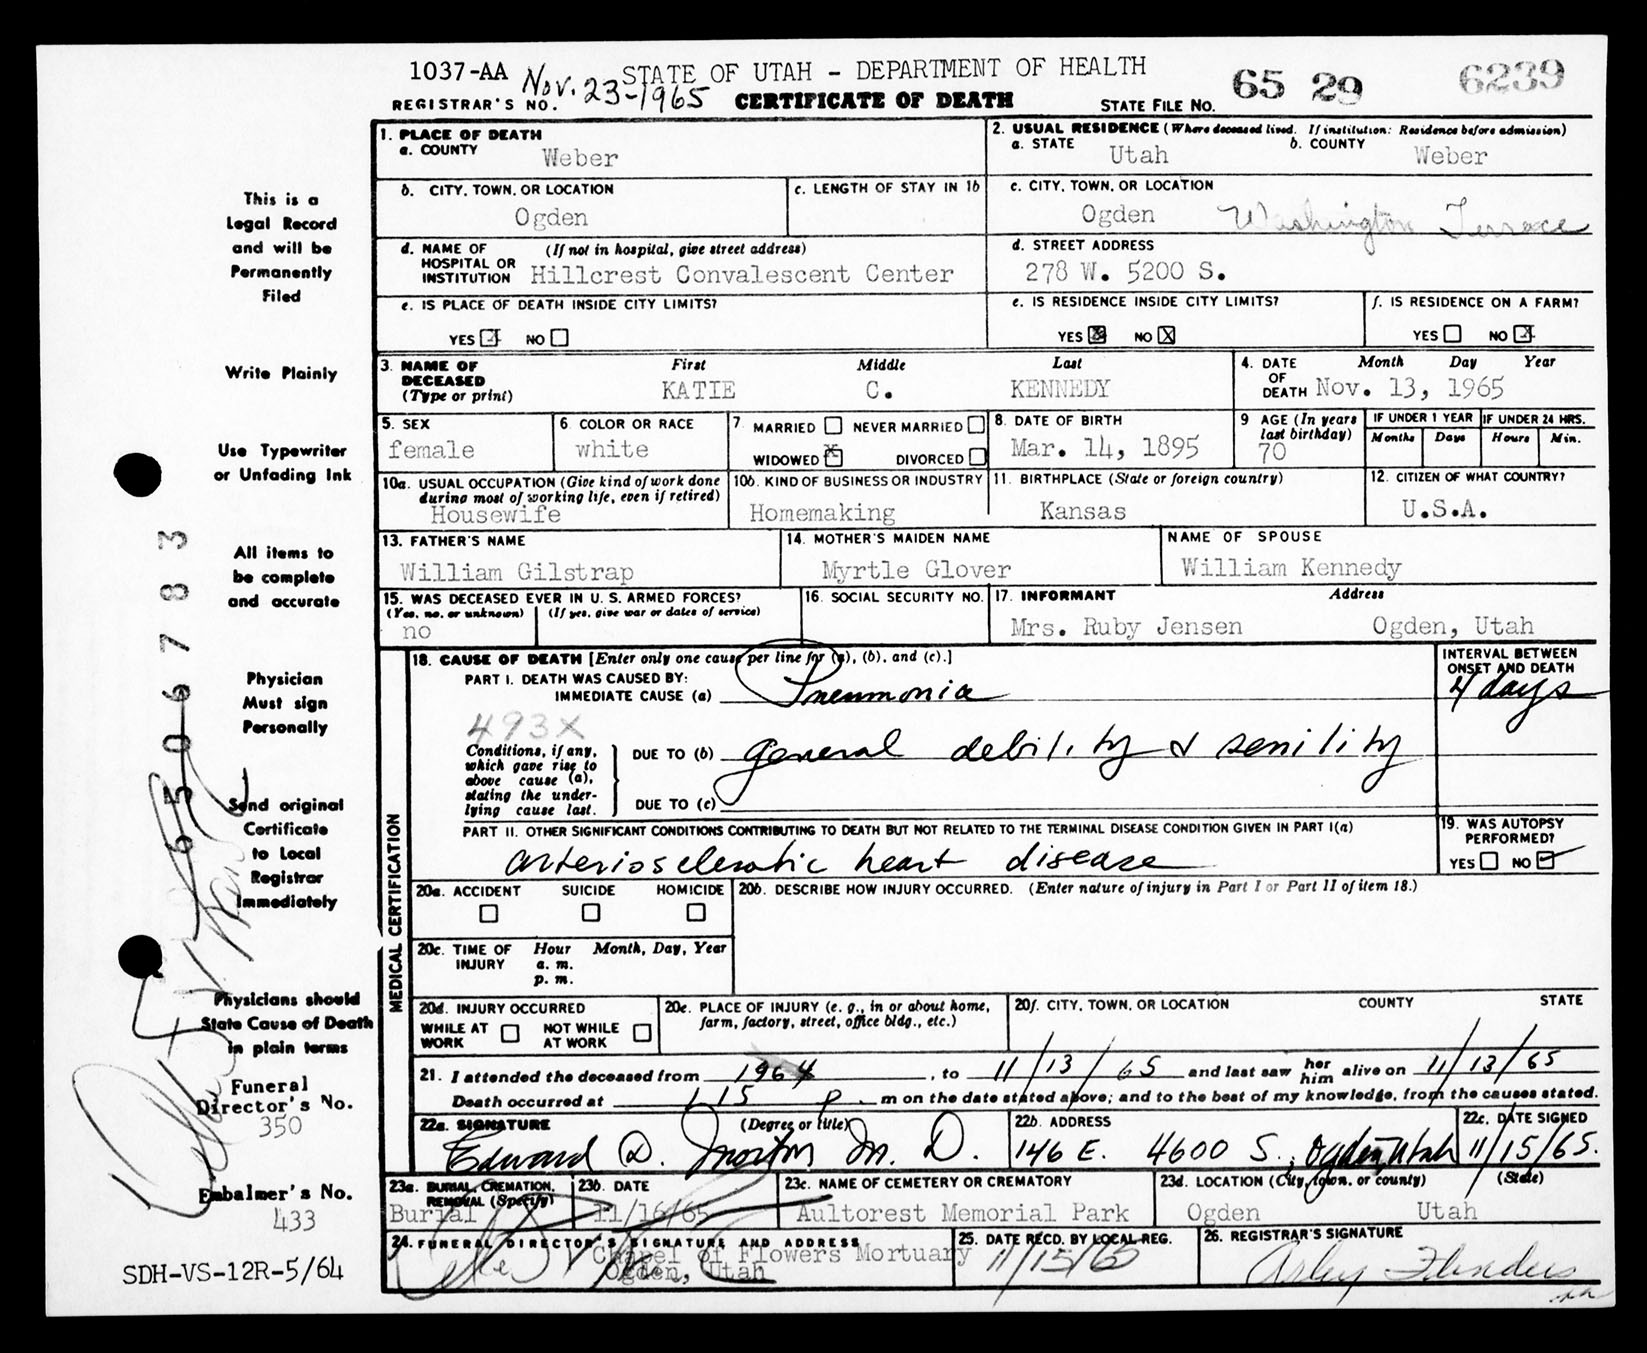 1037-AA Nov. 23-1965 STATE OF UTAH - DEPARTMENT OF HEALTH
REGISTRAR'S NO. CERTIFICATE OF DEATH STATE FILE NO. 65 29 6239
This is a
Legal Record
and will be
Permanently
Filed
Write Plainly
Use Typewriter
or Unfading Ink
All items to
be complete
and accurate
Physician
Must sign
Personally
Send original
Certificate
to Local
Registrar
Immediately
Physicians should
State Cause of Death
in plain terms
Funeral
Director's No.
350
Embalmer's No.
433
SDH-VS-12R-5/64
6506783
1. PLACE OF DEATH
a. COUNTY Weber
2. USUAL RESIDENCE (Where deceased lived. If institution: Residence before admission)
a. STATE Utah b. COUNTY Weber
b. CITY, TOWN, OR LOCATION
Ogden
c. LENGTH OF STAY IN 1b
c. CITY, TOWN, OR LOCATION
Ogden Washington Terrace
d. NAME OF (If not in hospital, give street address)
HOSPITAL OR
INSTITUTION Hillcrest Convalescent Center
d. STREET ADDRESS
278 W. 5200 S.
e. IS PLACE OF DEATH INSIDE CITY LIMITS?
YES X NO
e. IS RESIDENCE INSIDE CITY LIMITS?
YES X NO X
f. IS RESIDENCE ON A FARM?
YES NO X
3. NAME OF DECEASED (Type or print)
First Middle Last
KATIE C. KENNEDY
4. DATE OF DEATH Month Day Year
Nov. 13, 1965
5. SEX
female
6. COLOR OR RACE
white
7. MARRIED NEVER MARRIED
WIDOWED X DIVORCED
8. DATE OF BIRTH
Mar. 14, 1895
9 AGE (In years last birthday)
70
IF UNDER 1 YEAR IF UNDER 24 HRS.
Months Days Hours Min.
10a. USUAL OCCUPATION (Give kind of work done
during most of working life, even if retired)
Housewife
10b. KIND OF BUSINESS OR INDUSTRY
Homemaking
11. BIRTHPLACE (State or foreign country)
Kansas
12. CITIZEN OF WHAT COUNTRY?
U.S.A.
13. FATHER'S NAME
William Gilstrap
14. MOTHER'S MAIDEN NAME
Myrtle Glover
NAME OF SPOUSE
William Kennedy
15. WAS DECEASED EVER IN U. S. ARMED FORCES?
(Yes, no, or unknown) (If yes, give war or dates of service)
no
16. SOCIAL SECURITY NO.
17. INFORMANT Address
Mrs. Ruby Jensen Ogden, Utah
MEDICAL CERTIFICATION
18. CAUSE OF DEATH [Enter only one cause per line for (a), (b), and (c).]
PART I. DEATH WAS CAUSED BY:
IMMEDIATE CAUSE (a) Pneumonia
INTERVAL BETWEEN
ONSET AND DEATH
4 days
493X
Conditions, if any,
which gave rise to
above cause (a),
stating the under-
lying cause last.
DUE TO (b) general debility & senility
DUE TO (c)
PART II. OTHER SIGNIFICANT CONDITIONS CONTRIBUTING TO DEATH BUT NOT RELATED TO THE TERMINAL DISEASE CONDITION GIVEN IN PART I(a)
arteriosclerotic heart disease
19. WAS AUTOPSY
PERFORMED?
YES NO ✓
20a. ACCIDENT SUICIDE HOMICIDE
20b. DESCRIBE HOW INJURY OCCURRED. (Enter nature of injury in Part I or Part II of item 18.)
20c. TIME OF INJURY Hour Month, Day, Year
a. m.
p. m.
20d. INJURY OCCURRED
WHILE AT WORK NOT WHILE AT WORK
20e. PLACE OF INJURY (e. g., in or about home,
farm, factory, street, office bldg., etc.)
20f. CITY, TOWN, OR LOCATION COUNTY STATE
21. I attended the deceased from 1964, to 11/13/65 and last saw her him alive on 11/13/65
Death occurred at 1 15 p. m on the date stated above; and to the best of my knowledge, from the causes stated.
22a. SIGNATURE (Degree or title)
Edward D. Morton M. D.
22b. ADDRESS
146 E. 4600 S., Ogden, Utah
22c. DATE SIGNED
11/15/65.
23a. BURIAL, CREMATION,
REMOVAL (Specify)
Burial
23b. DATE
11/16/65
23c. NAME OF CEMETERY OR CREMATORY
Aultorest Memorial Park
23d. LOCATION (City, town, or county) (State)
Ogden Utah
24. FUNERAL DIRECTOR'S SIGNATURE AND ADDRESS
Chapel of Flowers Mortuary
Ogden, Utah
25. DATE RECD. BY LOCAL REG.
11/15/65
26. REGISTRAR'S SIGNATURE